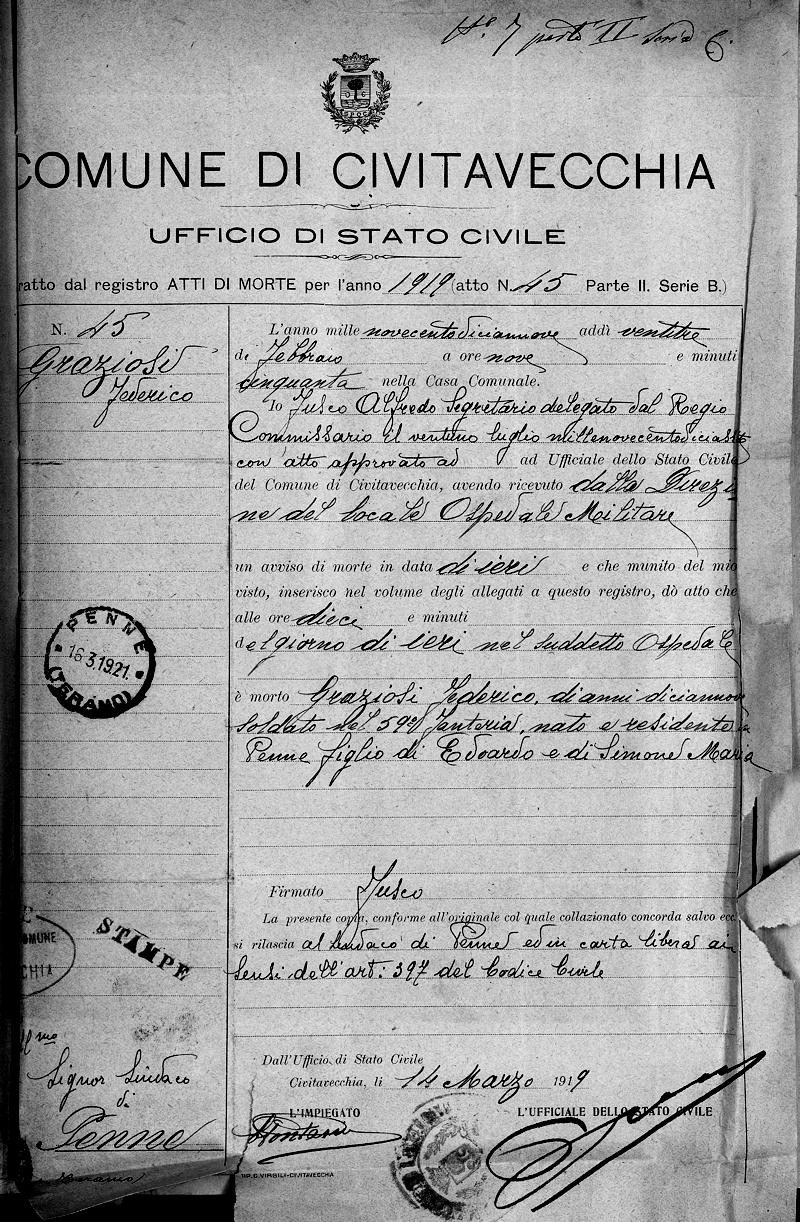 N.º 7 parte II Serie C.
COMUNE DI CIVITAVECCHIA
UFFICIO DI STATO CIVILE
ratto dal registro ATTI DI MORTE per l'anno 1919 (atto N. 45 Parte II. Serie B.)
N. 45
Graziosi
Federico
L'anno mille novecentodiciannove addì ventitre
di Febbraio a ore nove e minuti
cinquanta nella Casa Comunale.
Io Fusco Alfredo Segretario delegato dal Regio
Commissario il ventuno luglio millenovecentodiciasette
con atto approvato ad ad Ufficiale dello Stato Civile
del Comune di Civitavecchia, avendo ricevuto dalla Direzio
ne del locale Ospedale Militare
un avviso di morte in data di ieri e che munito del mio
visto, inserisco nel volume degli allegati a questo registro, dò atto che
alle ore dieci e minuti
del giorno di ieri nel suddetto Ospedale
è morto Graziosi Federico, di anni diciannove
soldato nel 59º Fanteria, nato e residente in
Penne figlio di Edoardo e di Simone Maria
PENNE
16.3.1921.
(TERAMO)
Firmato Fusco
La presente copia, conforme all'originale col quale collazionato concorda salvo ecc.
si rilascia al Sindaco di Penne ed in carta libera ai
sensi dell'art: 397 del Codice Civile
OMUNE
CHIA
STAMPE
Ill.mo
Signor Sindaco
di
Penne
Teramo
Dall'Ufficio di Stato Civile
Civitavecchia, li 14 Marzo 1919
L'IMPIEGATO
L'UFFICIALE DELLO STATO CIVILE
TIP. C. VIRGILI-CIVITAVECCHIA